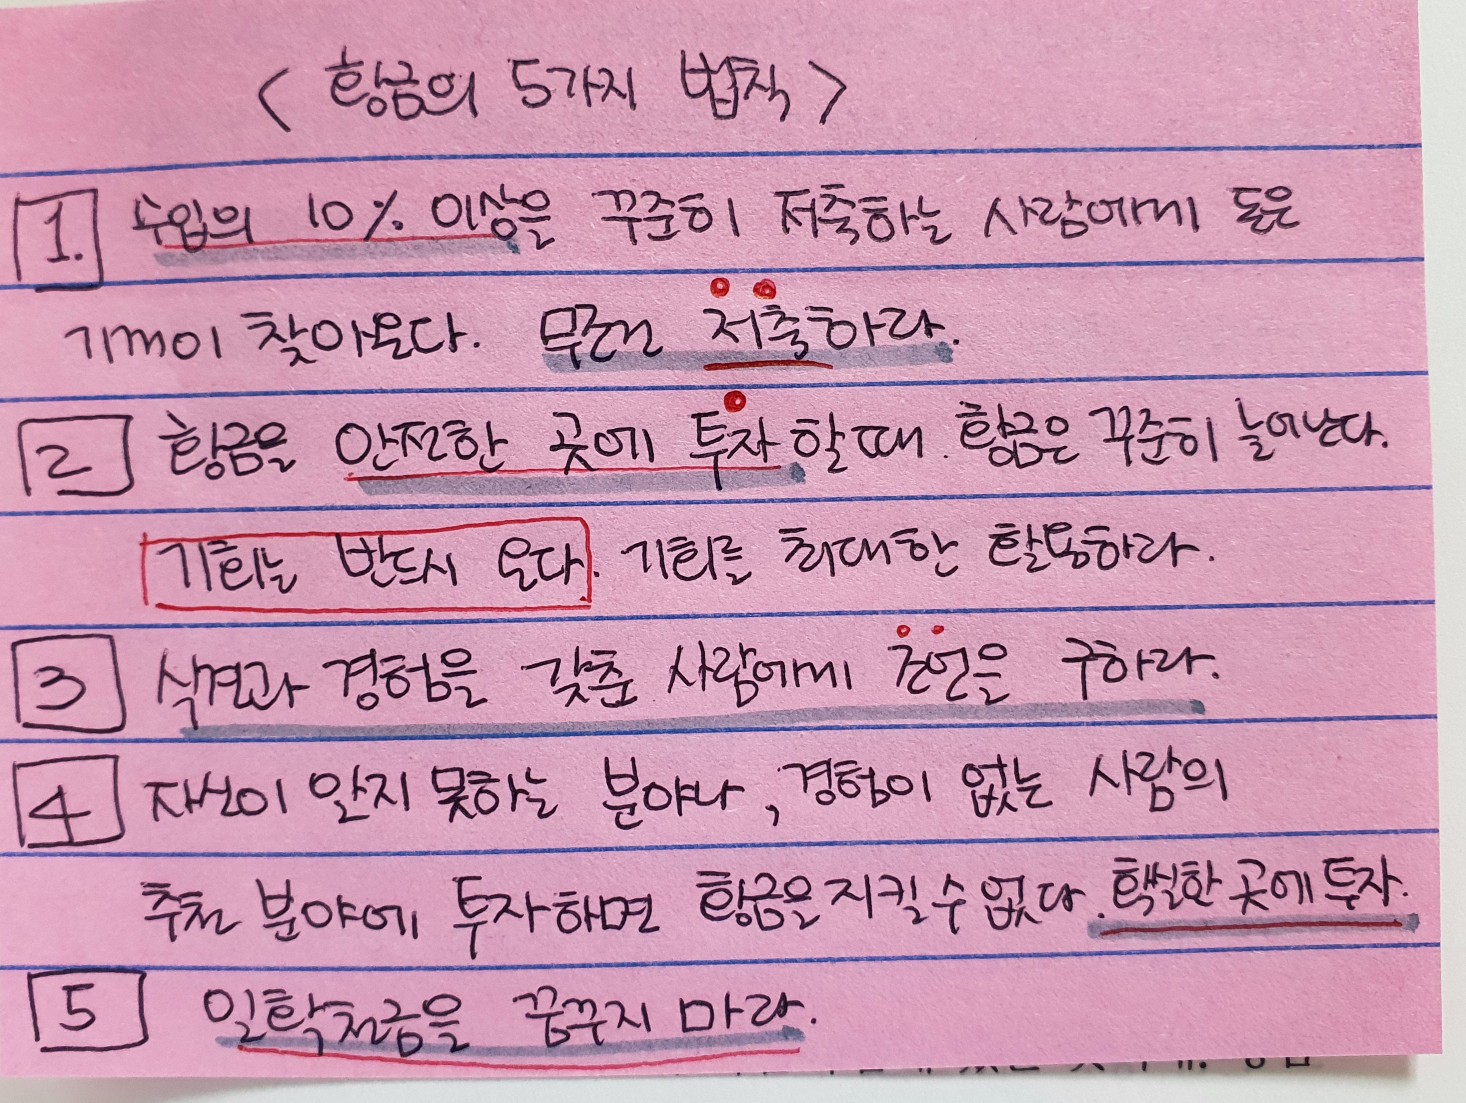 < 황금의 5가지 법칙 >
1. 수입의 10% 이상을 꾸준히 저축하는 사람에게 돈은
기꺼이 찾아온다. 무조건 저축하라.
2 황금을 안전한 곳에 투자할때. 황금은 꾸준히 늘어난다.
기회는 반드시 온다. 기회를 최대한 활용하라.
3 식견과 경험을 갖춘 사람에게 조언을 구하라.
4 자신이 알지 못하는 분야나, 경험이 없는 사람의
추천 분야에 투자하면 황금을 지킬 수 없다. 확실한 곳에 투자.
5 일확천금을 꿈꾸지 마라.